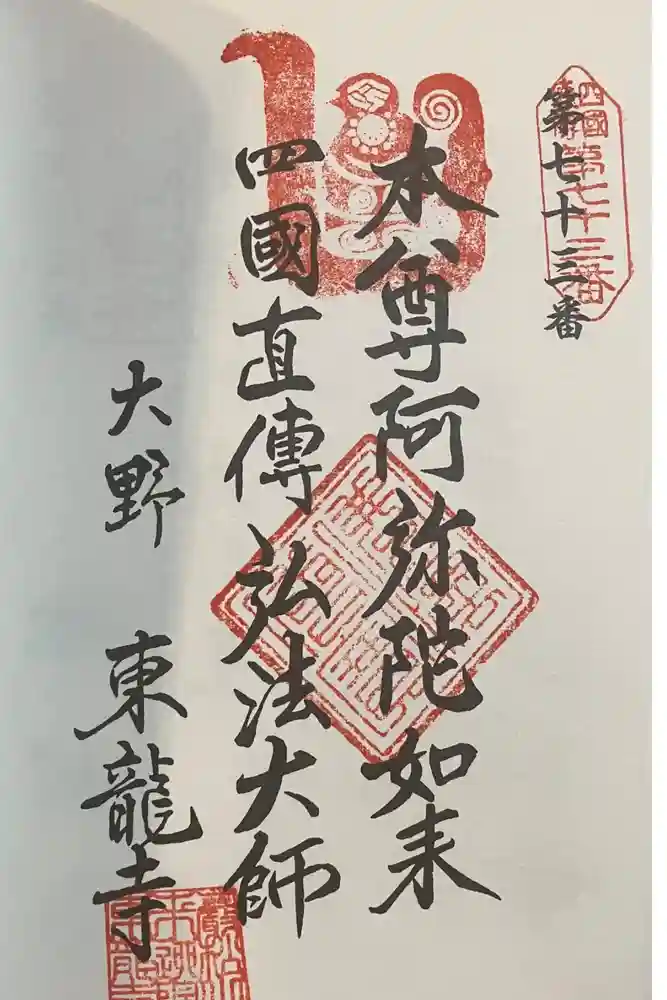 第七十三番
四國第七十三番
本尊阿弥陀如来
四國直傳弘法大師
大野 東龍寺